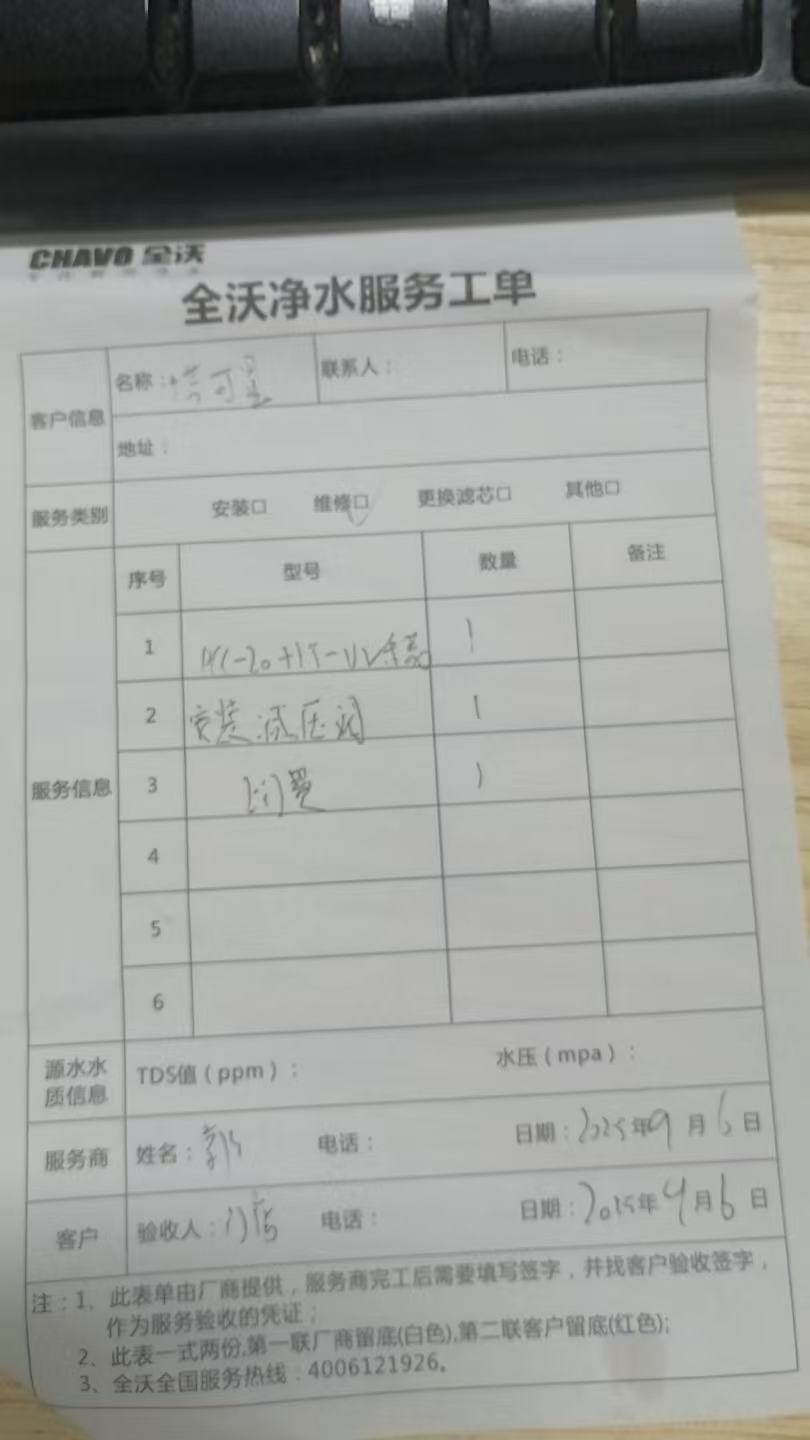 CHAVO 全沃
全沃净水服务工单
客户信息 名称： 联系人： 电话：
地址：
服务类别 安装□ 维修□ 更换滤芯□ 其他□
服务信息 序号 型号 数量 备注
1 1
2 安装减压阀 1
3 1
4
5
6
源水水质信息 TDS值（ppm）： 水压（mpa）：
服务商 姓名：郭 电话： 日期：2025年9月6日
客户 验收人： 电话： 日期：2025年9月6日
注：1、此表单由厂商提供，服务商完工后需要填写签字，并找客户验收签字，
作为服务验收的凭证；
2、此表一式两份,第一联厂商留底(白色),第二联客户留底(红色);
3、全沃全国服务热线：4006121926。